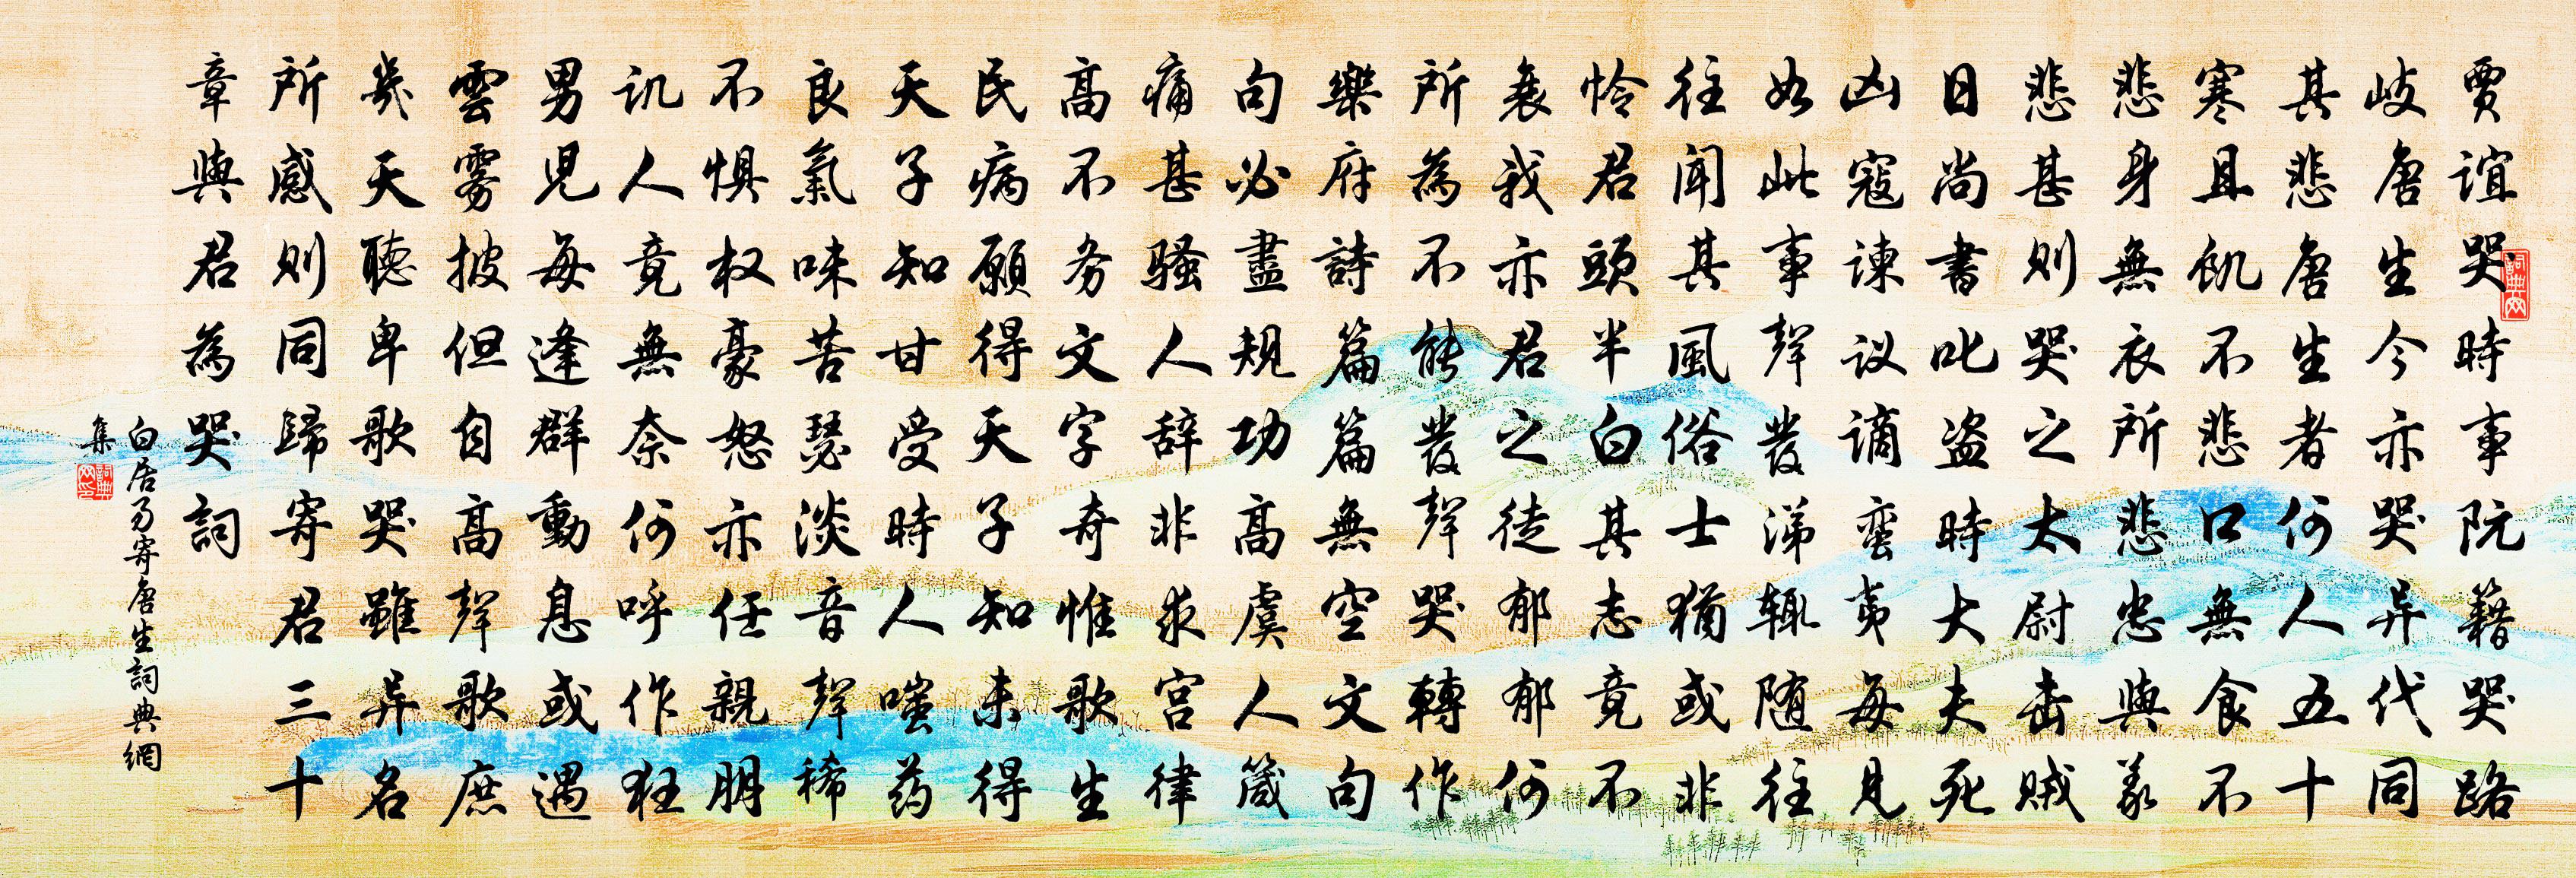 賈誼哭時事阮籍哭路
岐唐生今亦哭异代同
其悲唐生者何人五十
寒且飢不悲口無食不
悲身無衣所悲忠與義
悲甚則哭之太尉击賊
日尚書叱盗時大夫死
凶寇諫议谪蛮夷每見
如此事聲發涕辄随往
往聞其風俗士猶或非
怜君頭半白其志竟不
衰我亦君之徒郁郁何
所為不能發聲哭轉作
樂府詩篇篇無空文句
句必盡規功高虞人箴
痛甚騷人辞非求宫律
高不务文字奇惟歌生
民病願得天子知未得
天子知甘受時人嗤药
良氣味苦瑟淡音聲稀
不惧权豪怒亦任親朋
讥人竟無奈何呼作狂
男兒每逢群動息或遇
雲雾披但自高聲歌庶
幾天聽卑歌哭雖异名
所感則同歸寄君三十
章與君為哭詞
白居易寄唐生詞典網
集
詞典网
詞典网印